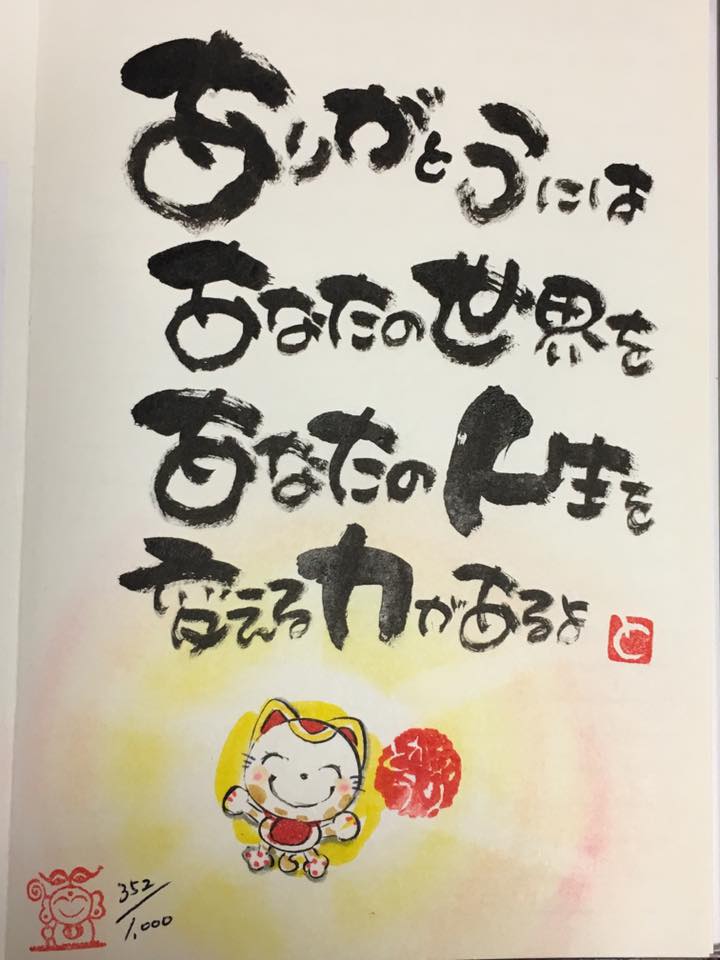 ありがとうには
あなたの世界を
あなたの人生を
変える力があるよ
と
352
1,000